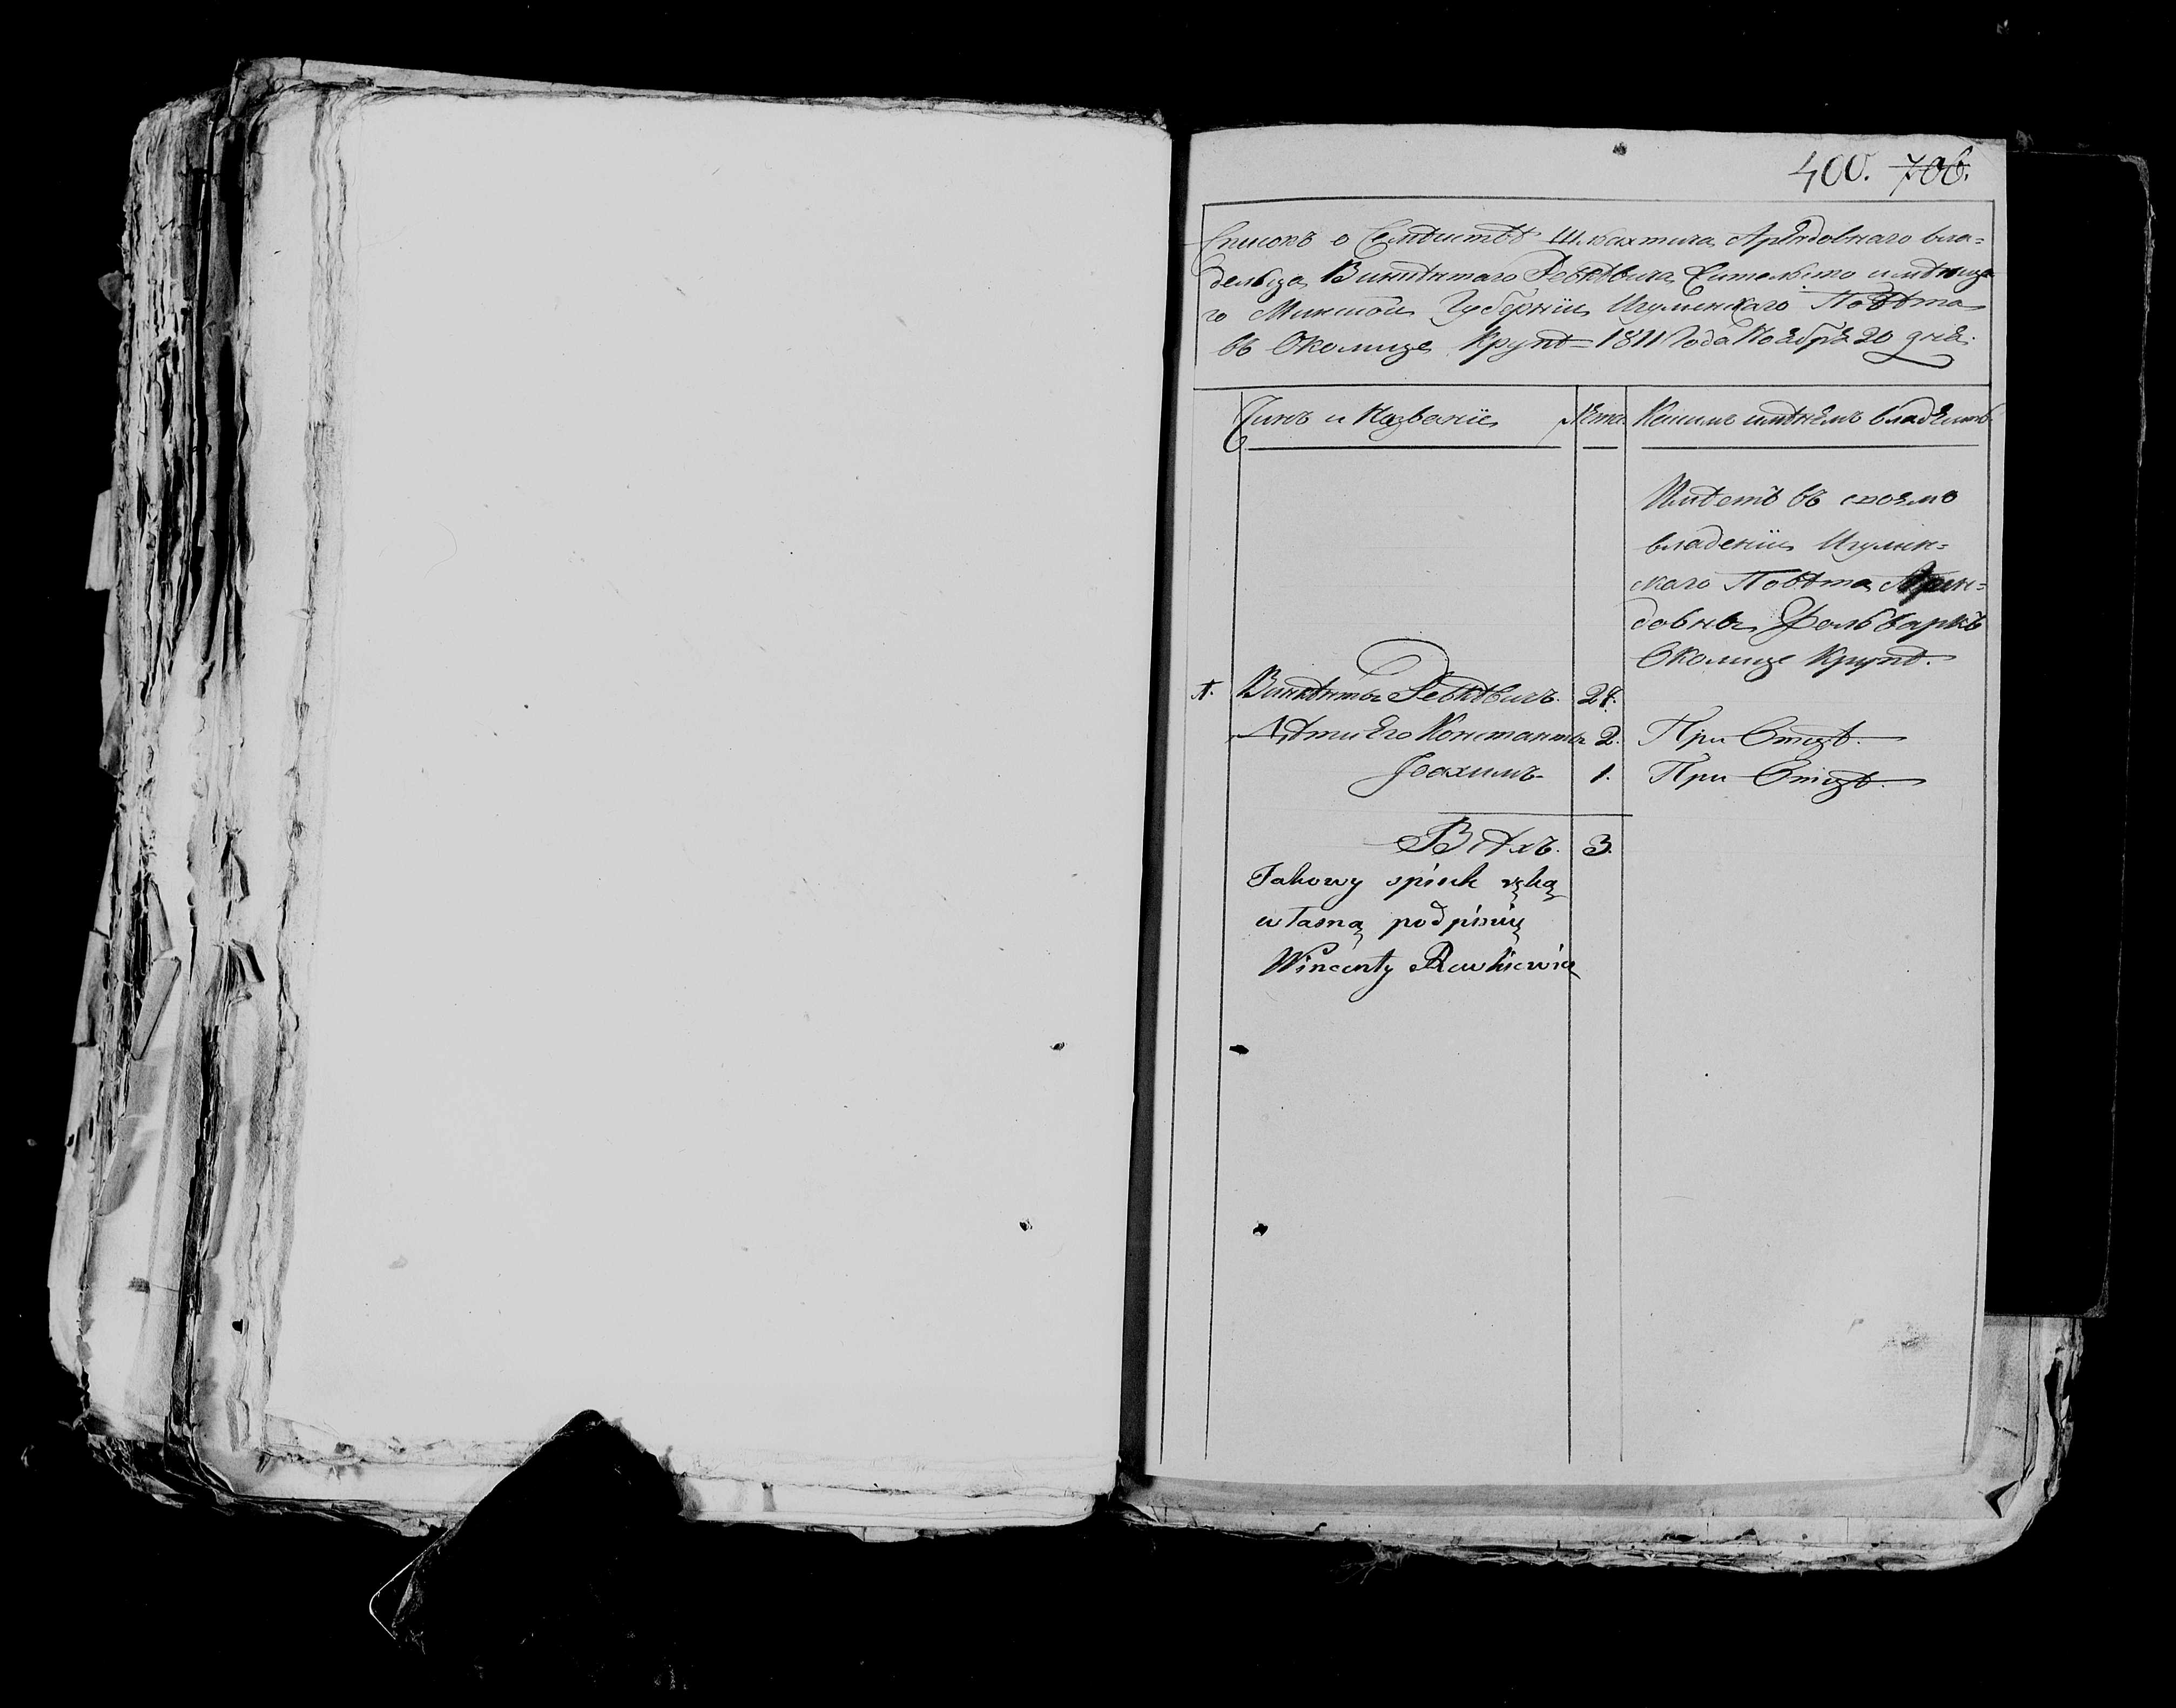 400. 706.
Списокъ о Семѣистве Шляхтича Арендовнаго вла=
дельца Викѣнтаго Ревкѣвича Жительство имѣюща
го Минской Губерніи Игуменскаго Повѣта
въ Околице Крупѣ 1811 Года Ноября 20 дня.
Чинъ и Названіе Лѣта Какимъ имѣнемъ владѣитъ
Имѣетъ въ своемъ
владеніи Игумен=
скаго Повѣта Арен=
довны Фольваркъ
Околице Крупѣ.
Викѣнты Ревкѣвичъ. 28.
Дѣти Его Константы 2. При Отцѣ.
Іоахимъ 1. При Отцѣ.
3.
Takowy spisek ręką
własną podpisuię
Wincenty Rewkiewicz